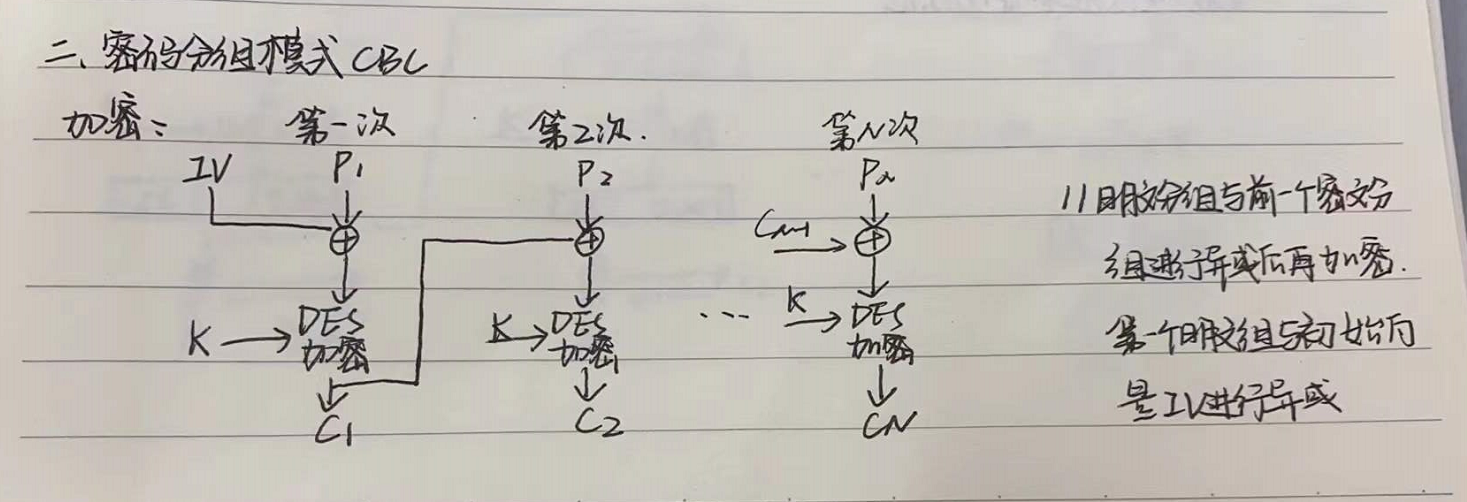 二、密码分组模式 CBC
加密： 第一次 第2次. 第N次
IV P1 P2 PN
//明文分组与前一个密文分
CN-1
组进行异或后再加密.
K DES 加密 K DES 加密 ... K DES 加密
第一个明文组与初始向
量IV进行异或
C1 C2 CN